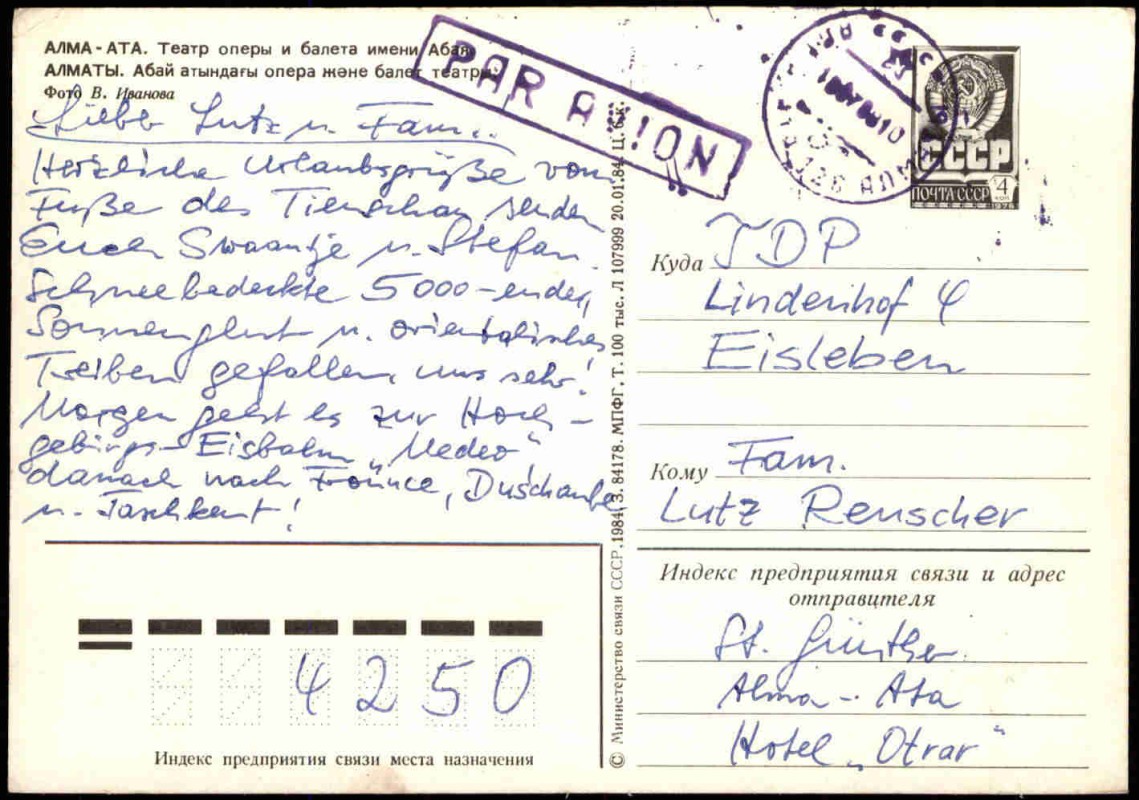 АЛМА-АТА. Театр оперы и балета имени Абая
АЛМАТЫ. Абай атындағы опера және балет театры
Фото В. Иванова
PAR AVION
СССР
ПОЧТА СССР
4
коп
1976
Liebe Lutz u. Fam.
Herzliche Urlaubsgrüße vom
Fuße des Tienschan senden
Euch Swaantje u. Stefan.
Schneebedeckte 5000-ender,
Sonnenglut u. orientalisches
Treiben gefallen uns sehr!
Morgen geht es zur Hoch-
gebirgs-Eisbahn „Medeo“
danach nach Frunce, Duschanbe
u. Taschkent!
© Министерство связи СССР, 1984. З. 84178. МПФГ. Т. 100 тыс. Л 107999 20.01.84. Ц. 6 к.
Куда
Lindenhof 4
Eisleben
Кому Fam.
Lutz Renscher
Индекс предприятия связи и адрес
отправителя
St. Günther
Alma-Ata
Hotel „Otrar“
4250
Индекс предприятия связи места назначения